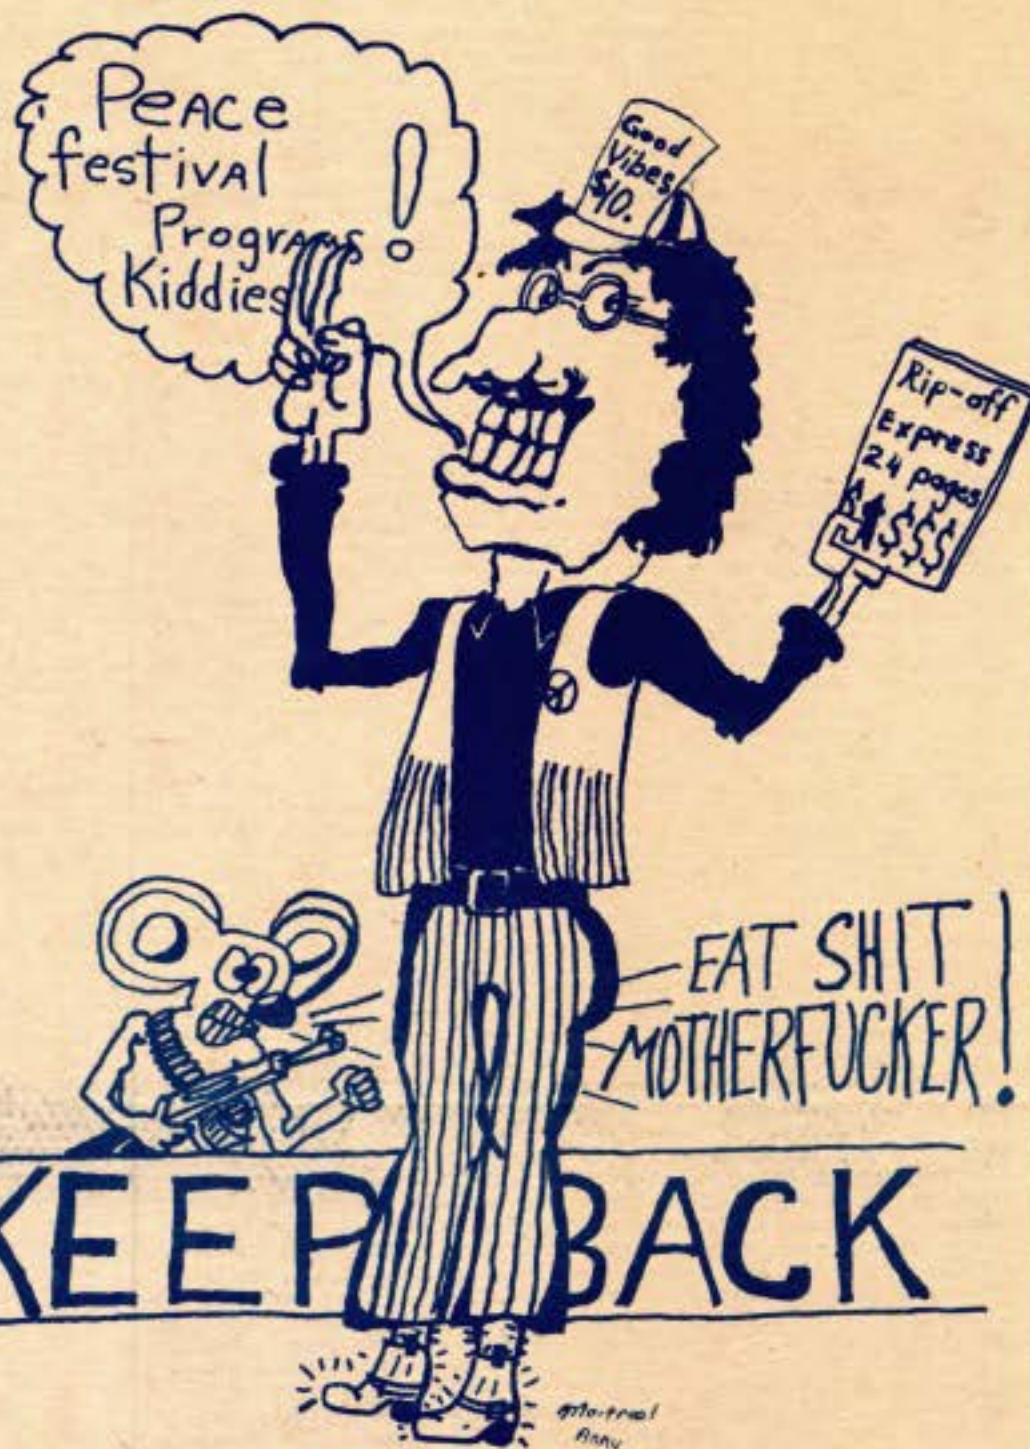 Peace
festival
Programs
Kiddies!
Good
Vibes
$10.
Rip-off
Express
24 pages
$$$$$
EAT SHIT
MOTHERFUCKER!
KEEP BACK